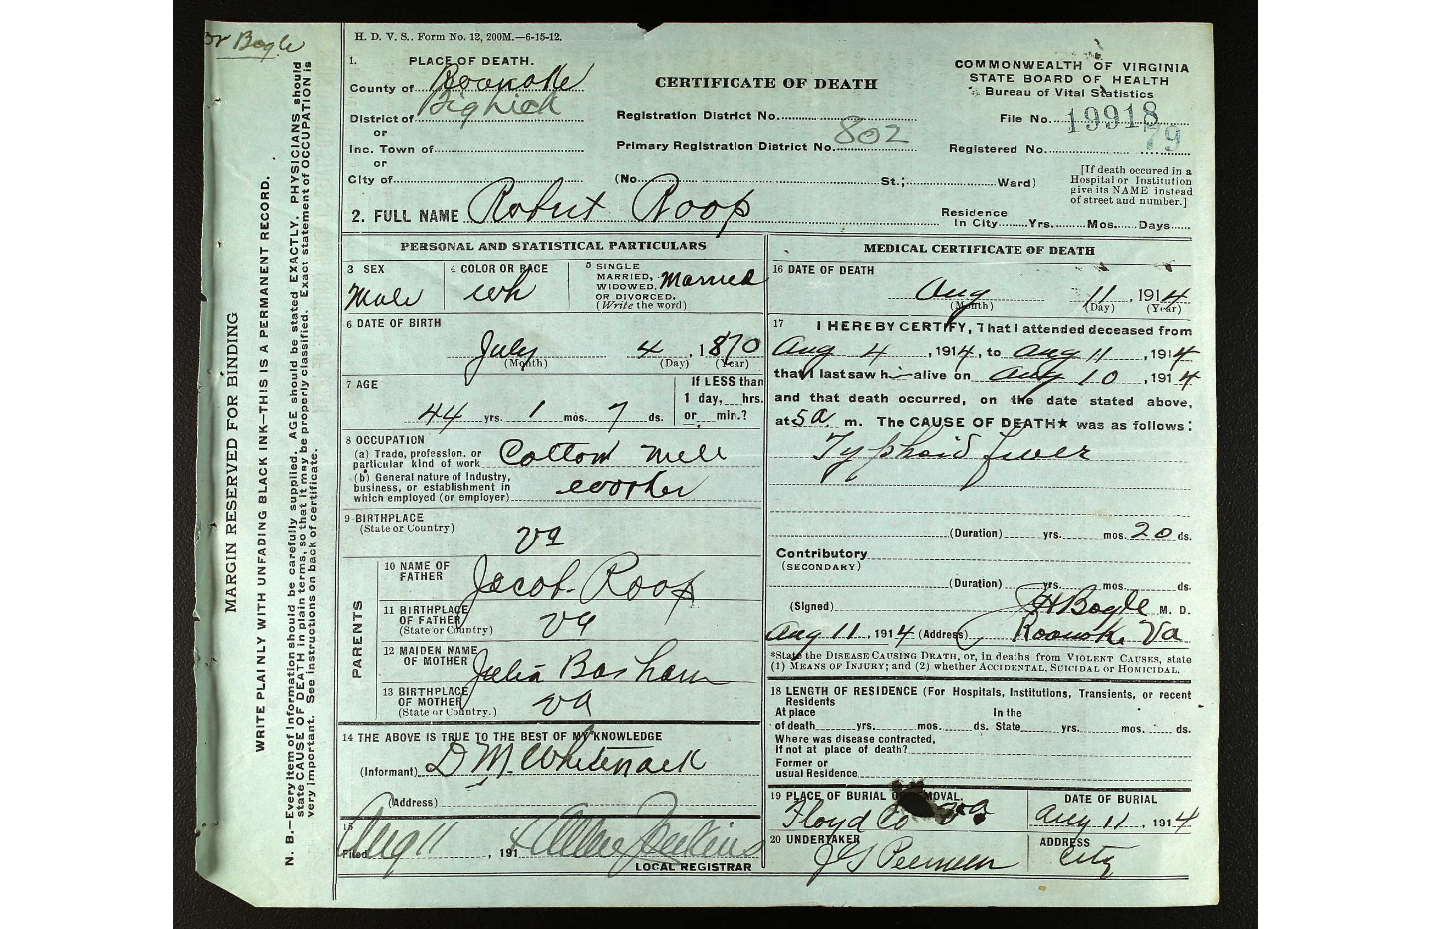 Dr Bogle
MARGIN RESERVED FOR BINDING
WRITE PLAINLY WITH UNFADING BLACK INK—THIS IS A PERMANENT RECORD.
N. B.—Every item of information should be carefully supplied. AGE should be stated EXACTLY. PHYSICIANS should
state CAUSE OF DEATH in plain terms, so that it may be properly classified. Exact statement of OCCUPATION is
very important. See instructions on back of certificate.
H. D. V. S.. Form No. 12, 200M.—6-15-12.
1. PLACE OF DEATH.
County of Roanoke
District of Big Lick
or
Inc. Town of
or
City of
CERTIFICATE OF DEATH
Registration District No.
Primary Registration District No. 802
(No. St.; Ward)
COMMONWEALTH OF VIRGINIA
STATE BOARD OF HEALTH
Bureau of Vital Statistics
File No. 19918
Registered No. 79
[If death occured in a
Hospital or Institution
give its NAME instead
of street and number.]
2. FULL NAME Robert Roop
Residence
In City Yrs. Mos. Days
PERSONAL AND STATISTICAL PARTICULARS
3 SEX
Male
4 COLOR OR RACE
wh
5 SINGLE
MARRIED,
WIDOWED,
OR DIVORCED.
(Write the word)
Married
6 DATE OF BIRTH
July 4, 1870
(Month) (Day) (Year)
7 AGE
44 yrs. 1 mos. 7 ds.
If LESS than
1 day, hrs.
or min.?
8 OCCUPATION
(a) Trade, profession, or
particular kind of work Cotton Mill
(b) General nature of Industry,
business, or establishment in
which employed (or employer) worker
9 BIRTHPLACE
(State or Country)
Va
PARENTS
10 NAME OF
FATHER Jacob Roop
11 BIRTHPLACE
OF FATHER
(State or Country) Va
12 MAIDEN NAME
OF MOTHER Julia Basham
13 BIRTHPLACE
OF MOTHER
(State or Country.) Va
14 THE ABOVE IS TRUE TO THE BEST OF MY KNOWLEDGE
(Informant) D M. Whitenack
(Address)
15
Filed Aug 11, 191 4 Jenkins
LOCAL REGISTRAR
MEDICAL CERTIFICATE OF DEATH
16 DATE OF DEATH
Aug 11, 1914
(Month) (Day) (Year)
17 I HEREBY CERTIFY, That I attended deceased from
Aug 4, 1914, to Aug 11, 1914
that I last saw h alive on Aug 10, 1914
and that death occurred, on the date stated above,
at 5 a m. The CAUSE OF DEATH★ was as follows:
Typhoid fever
(Duration) yrs. mos. 20 ds.
Contributory
(SECONDARY)
(Duration) yrs. mos. ds.
(Signed) J H Bogle M. D.
Aug 11, 1914 (Address) Roanoke Va
*State the DISEASE CAUSING DEATH, or, in deaths from VIOLENT CAUSES, state
(1) MEANS OF INJURY; and (2) whether ACCIDENTAL, SUICIDAL or HOMICIDAL.
18 LENGTH OF RESIDENCE (For Hospitals, Institutions, Transients, or recent
Residents
At place In the
of death yrs. mos. ds. State yrs. mos. ds.
Where was disease contracted,
if not at place of death?
Former or
usual Residence
19 PLACE OF BURIAL OR REMOVAL.
Floyd Co Va
DATE OF BURIAL
Aug 11, 1914
20 UNDERTAKER
J G
ADDRESS
City